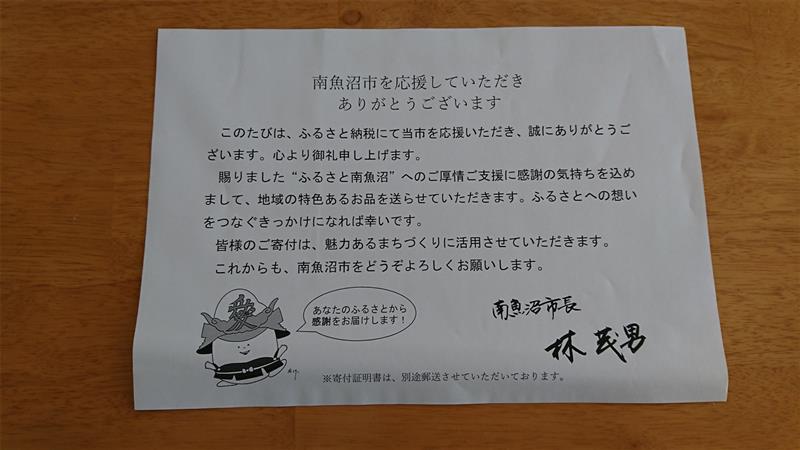 南魚沼市を応援していただき
ありがとうございます
このたびは、ふるさと納税にて当市を応援いただき、誠にありがとうご
ざいます。心より御礼申し上げます。
賜りました“ふるさと南魚沼”へのご厚情ご支援に感謝の気持ちを込め
まして、地域の特色あるお品を送らせていただきます。ふるさとへの想い
をつなぐきっかけになれば幸いです。
皆様のご寄付は、魅力あるまちづくりに活用させていただきます。
これからも、南魚沼市をどうぞよろしくお願いします。
愛
あなたのふるさとから
感謝をお届けします！
南魚沼市長
林 茂男
※寄付証明書は、別途郵送させていただいております。